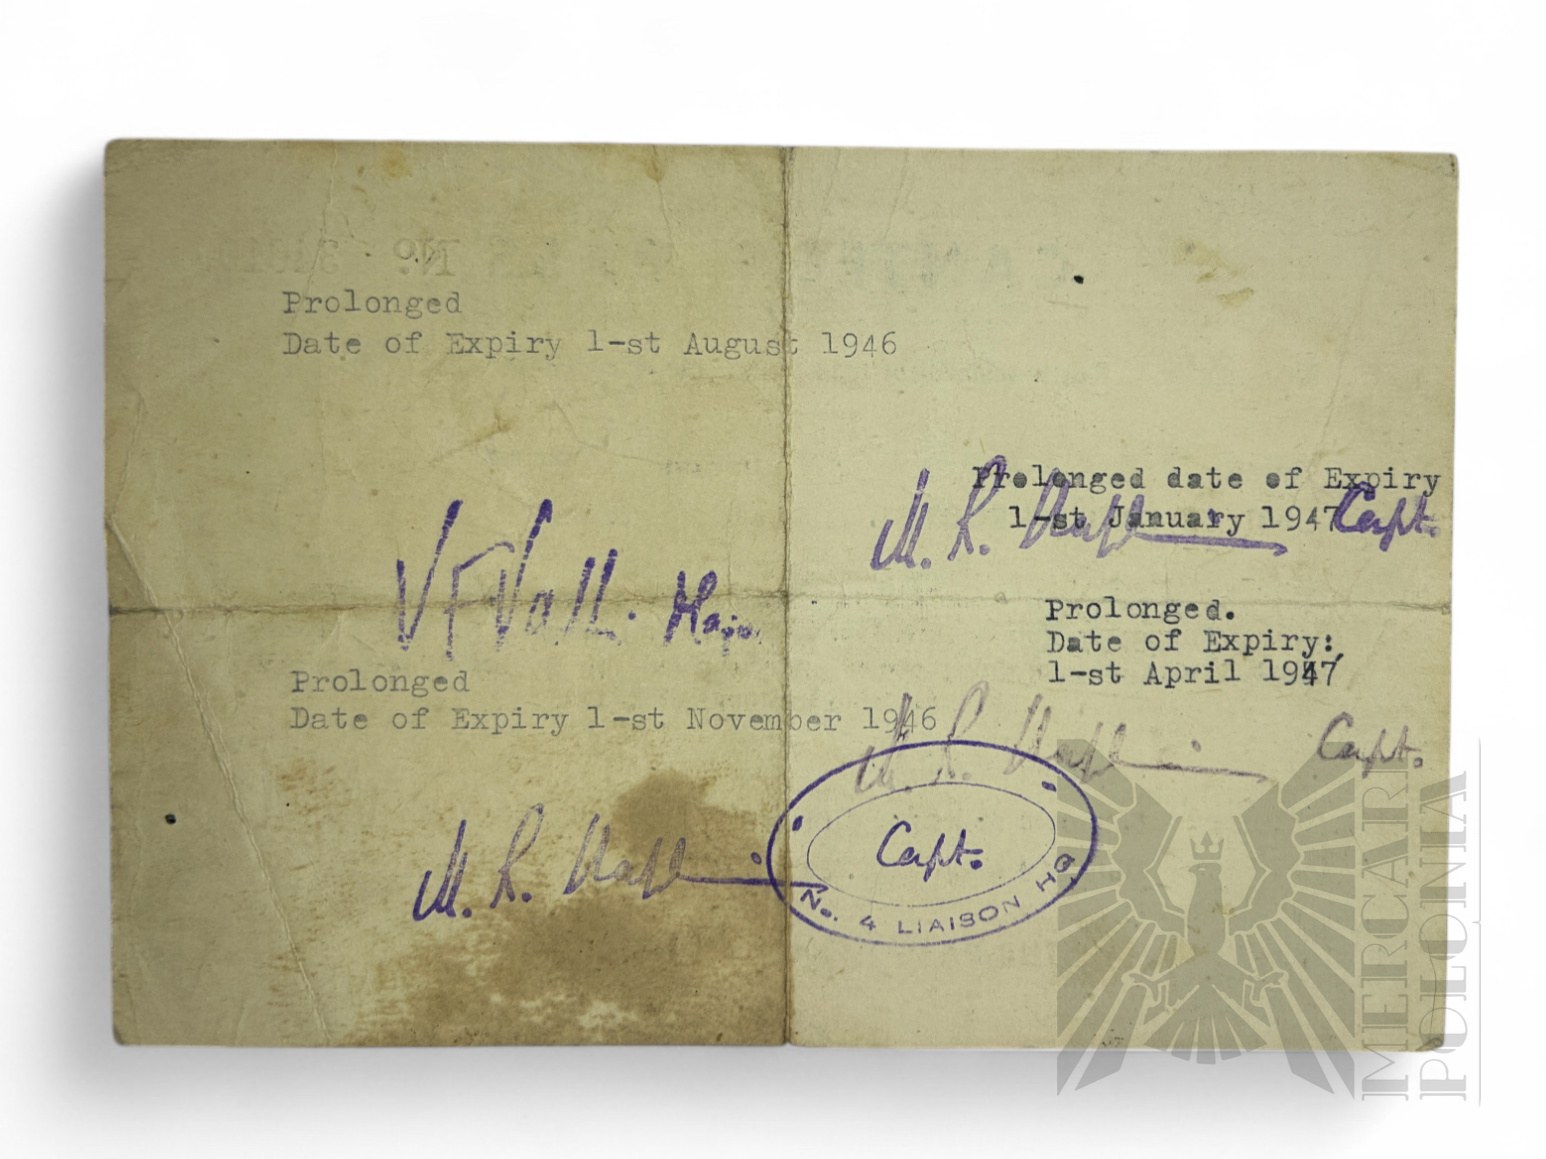 Prolonged
Date of Expiry 1-st August 1946
Prolonged
Date of Expiry 1-st November 1946
M. R.
Capt.
No. 4 LIAISON HQ
Prolonged date of Expiry
1-st January 1947
M. R.
Capt.
Prolonged.
Date of Expiry:
1-st April 1947
M. R.
Capt.
MERCARI
POLONIA